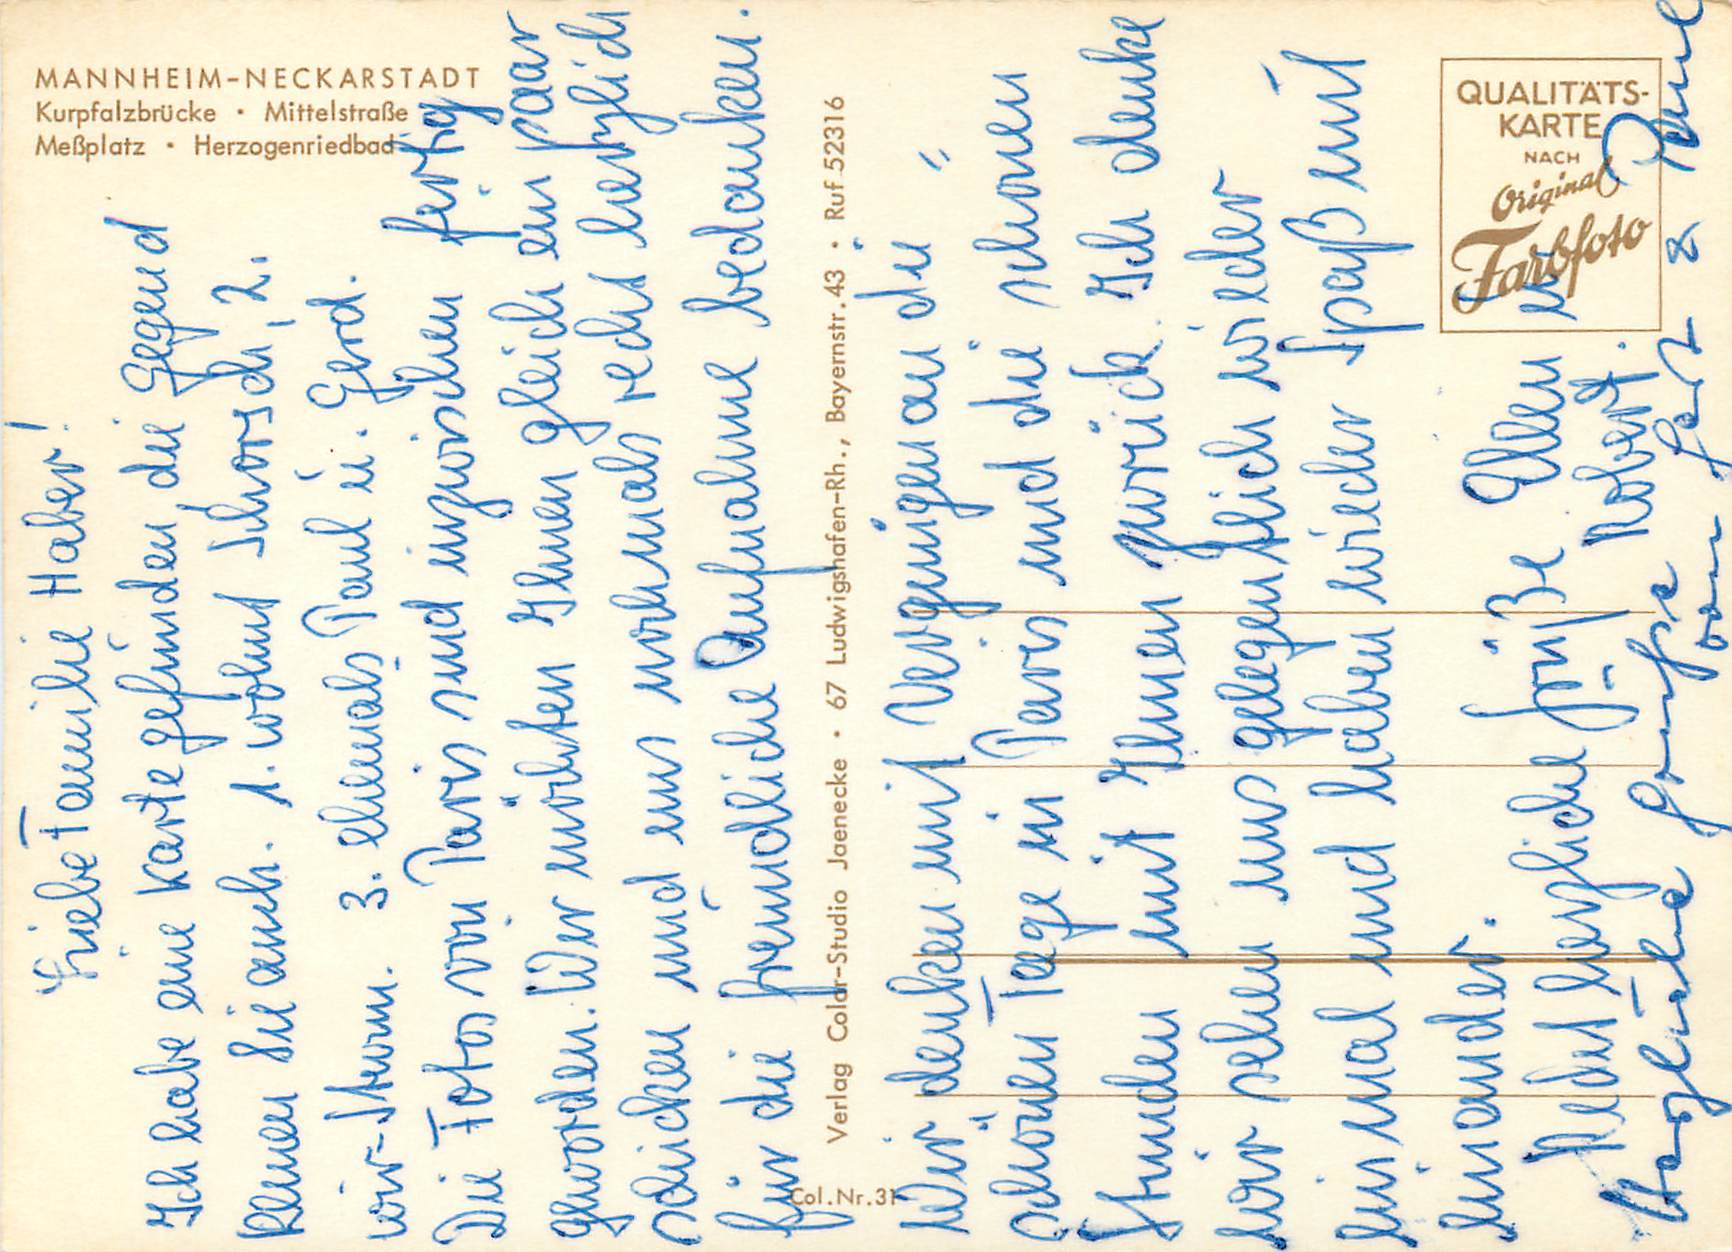 MANNHEIM-NECKARSTADT
Kurpfalzbrücke · Mittelstraße
Meßplatz · Herzogenriedbad
QUALITÄTS-
KARTE
NACH
Original
Farbfoto
Verlag Color-Studio Jaenecke · 67 Ludwigshafen-Rh., Bayernstr. 43 · Ruf 52316
Col.Nr. 31
Liebe Familie Haber!
Ich habe eine Karte gefunden, die Gegend
kennen Sie auch. 1. wohnt Schorsch, 2.
wir-Sturm. 3. ehemals Paul u. Gerd.
Die Fotos von Paris sind inzwischen fertig
geworden. Wir möchten Ihnen gleich ein paar
schicken und uns nochmals recht herzlich
für die freundliche Aufnahme bedanken.
Wir denken mit Vergnügen an die
schönen Tage in Paris und die schönen
Stunden mit Ihnen zurück. Ich denke
wir sehen uns gelegentlich wieder
einmal und haben wieder Spaß mit
einander.
Recht herzliche Grüße Ellen u.
Robert.
Herzliche Grüsse von